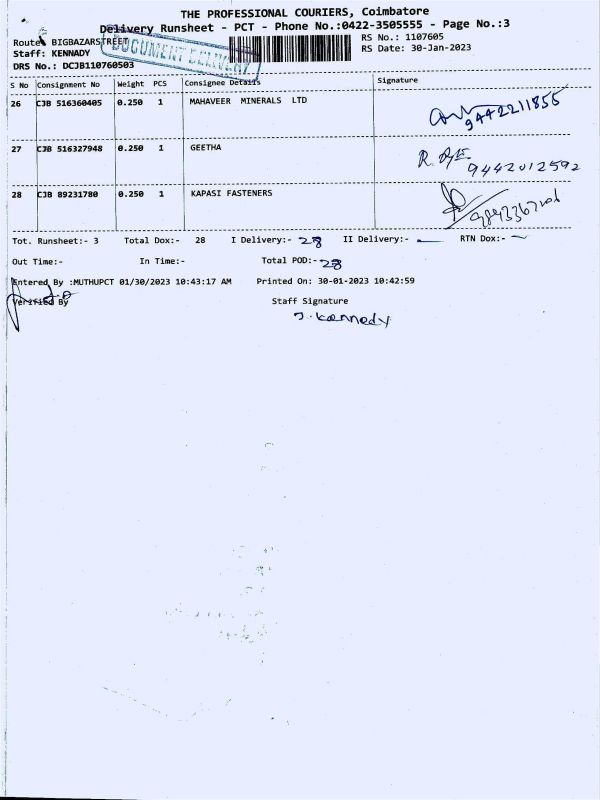 THE PROFESSIONAL COURIERS, Coimbatore
Delivery Runsheet - PCT - Phone No.:0422-3505555 - Page No.:3
Route: BIGBAZARSTREET
RS No.: 1107605
Staff: KENNADY
RS Date: 30-Jan-2023
DOCUMENT DELIVERY
DRS No.: DCJB110760503
S No Consignment No Weight PCS Consignee Details Signature
26 CJB 516360405 0.250 1 MAHAVEER MINERALS LTD
9442211855
27 CJB 516327948 0.250 1 GEETHA
9442012592
28 CJB 89231780 0.250 1 KAPASI FASTENERS
Tot. Runsheet:- 3 Total Dox:- 28 I Delivery:- 28 II Delivery:- — RTN Dox:- ~
Out Time:- In Time:- Total POD:- 28
Entered By :MUTHUPCT 01/30/2023 10:43:17 AM Printed On: 30-01-2023 10:42:59
Verified By Staff Signature
J. Kennedy